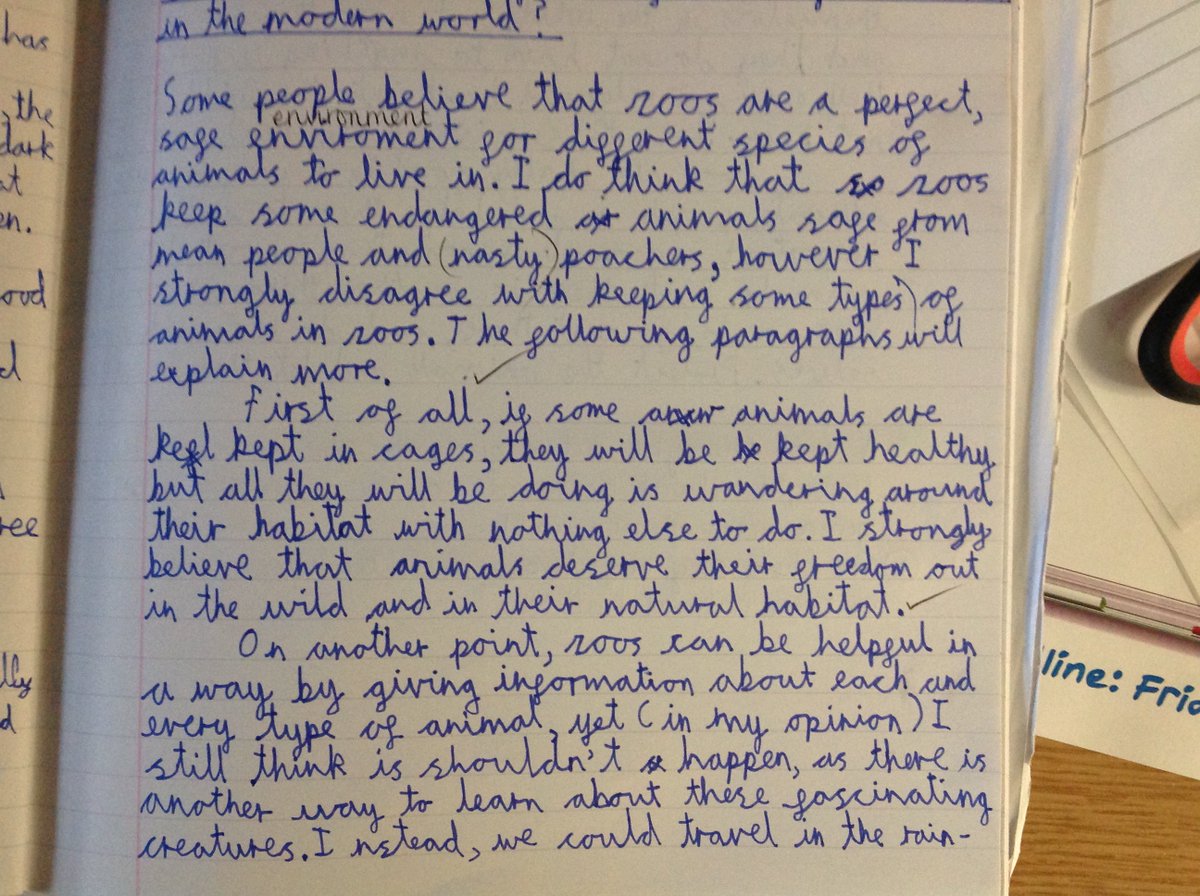 in the modern world?
Some people believe that zoos are a perfect,
environment
safe enviroment for different species of
animals to live in. I do think that zoos
keep some endangered animals safe from
mean people and (nasty) poachers, however I
strongly disagree with keeping some types) of
animals in zoos. The following paragraphs will
explain more.
First of all, if some animals are
kept in cages, they will be kept healthy
but all they will be doing is wandering around
their habitat with nothing else to do. I strongly
believe that animals deserve their freedom out
in the wild and in their natural habitat.
On another point, zoos can be helpful in
a way by giving information about each and
every type of animal, yet (in my opinion) I
still think is shouldn't happen, as there is
another way to learn about these fascinating
creatures. Instead, we could travel in the rain-
has
, the
dark
at
en.
ood
d
ree
lly
d
line: Frid